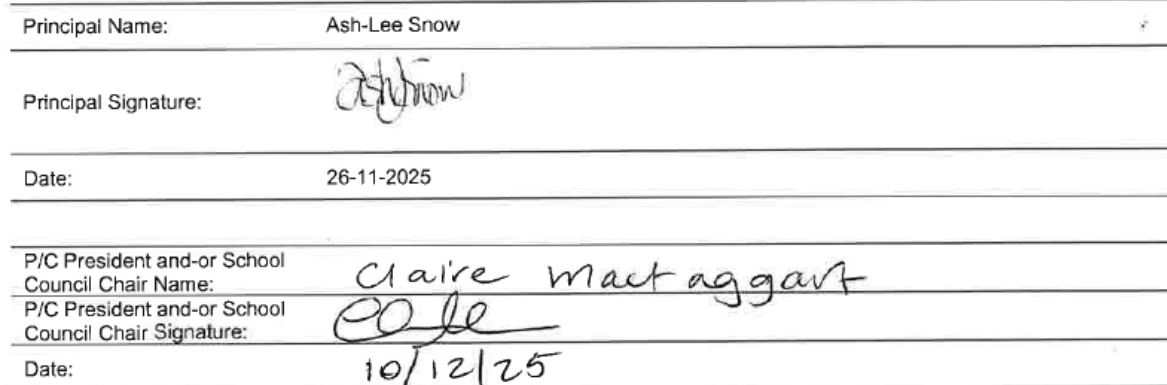 Principal Name: Ash-Lee Snow
Principal Signature: AshSnow
Date: 26-11-2025
P/C President and-or School
Council Chair Name: Claire Mactaggart
P/C President and-or School
Council Chair Signature:
Date: 10/12/25